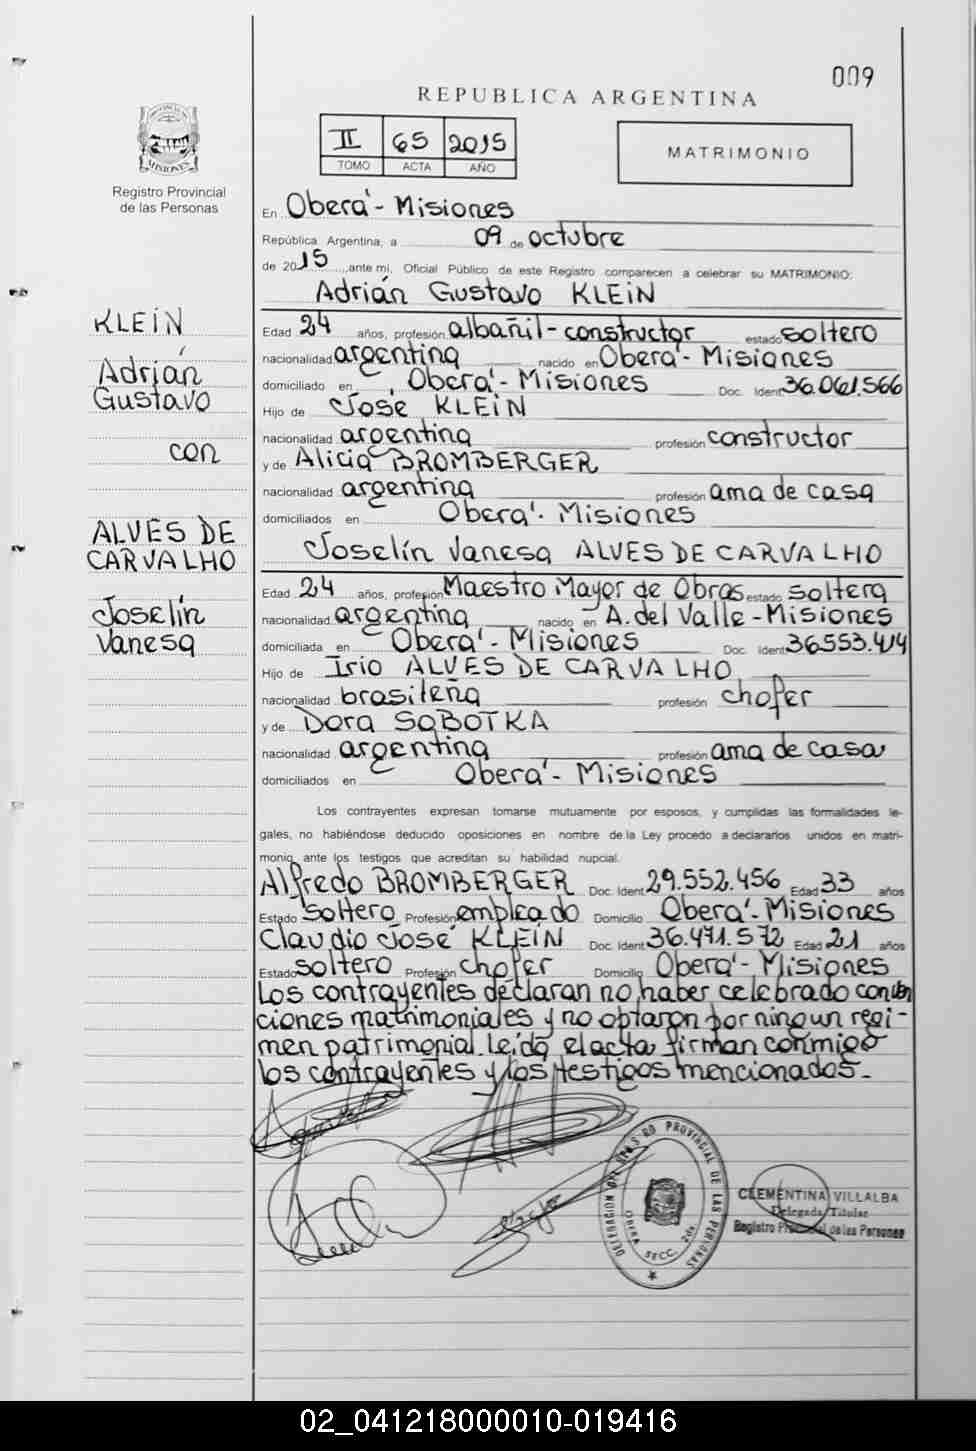 009
REPUBLICA ARGENTINA
II 65 2015
TOMO ACTA AÑO
MATRIMONIO
PROVINCIA
MISIONES
Registro Provincial
de las Personas
En Oberá - Misiones
República Argentina, a 09 de octubre
de 2015, ante mi, Oficial Público de este Registro comparecen a celebrar su MATRIMONIO:
Adrián Gustavo KLEIN
KLEIN
Adrián
Gustavo
con
ALVES DE
CARVALHO
Joselín
Vanesa
Edad 24 años, profesión albañil-constructor estado soltero
nacionalidad argentina nacido en Oberá - Misiones
domiciliado en Oberá - Misiones Doc. Ident 36.061.566
Hijo de José KLEIN
nacionalidad argentina profesión constructor
y de Alicia BROMBERGER
nacionalidad argentina profesión ama de casa
domiciliados en Oberá - Misiones
Joselín Vanesa ALVES DE CARVALHO
Edad 24 años, profesión Maestro Mayor de Obras estado soltera
nacionalidad argentina nacido en A. del Valle - Misiones
domiciliada en Oberá - Misiones Doc. Ident 36.553.414
Hijo de Irio ALVES DE CARVALHO
nacionalidad brasileña profesión chofer
y de Dora SOBOTKA
nacionalidad argentina profesión ama de casa
domiciliados en Oberá - Misiones
Los contrayentes expresan tomarse mutuamente por esposos, y cumplidas las formalidades le-
gales, no habiéndose deducido oposiciones en nombre de la Ley procedo a declararlos unidos en matri-
monio ante los testigos que acreditan su habilidad nupcial.
Alfredo BROMBERGER Doc. Ident 29.552.456 Edad 33 años
Estado soltero Profesión empleado Domicilio Oberá - Misiones
Claudio José KLEIN Doc. Ident 36.471.572 Edad 21 años
Estado soltero Profesión chofer Domicilio Oberá - Misiones
Los contrayentes declaran no haber celebrado conven
ciones matrimoniales y no optaron por ningun regi-
men patrimonial. Leída el acta firman conmigo
los contrayentes y los testigos mencionados.-
PROVINCIAL DE LAS PERSONAS
DELEGACION
OBERA SECC. 2da.
CLEMENTINA VILLALBA
Delegada Titular
Registro Provincial de las Personas
02_041218000010-019416